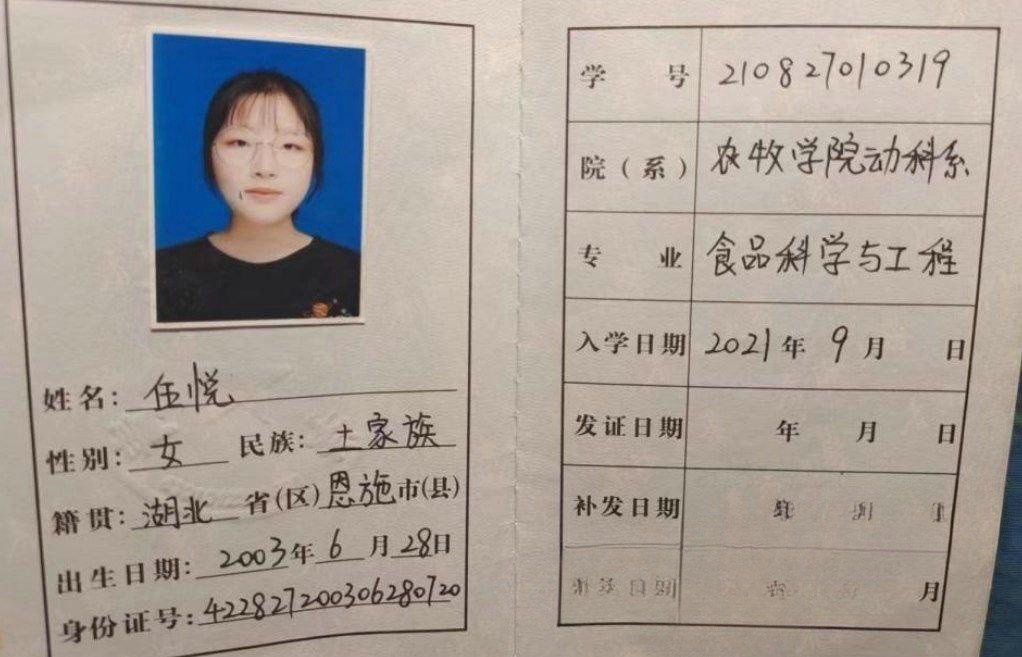 姓名: 伍悦
性别: 女 民族: 土家族
籍贯: 湖北 省(区) 恩施 市(县)
出生日期: 2003年 6 月 28日
身份证号: 422827200306280720
学 号 210827010319
院（系） 农牧学院动科系
专 业 食品科学与工程
入学日期 2021年 9月 日
发证日期 年 月 日
补发日期
月